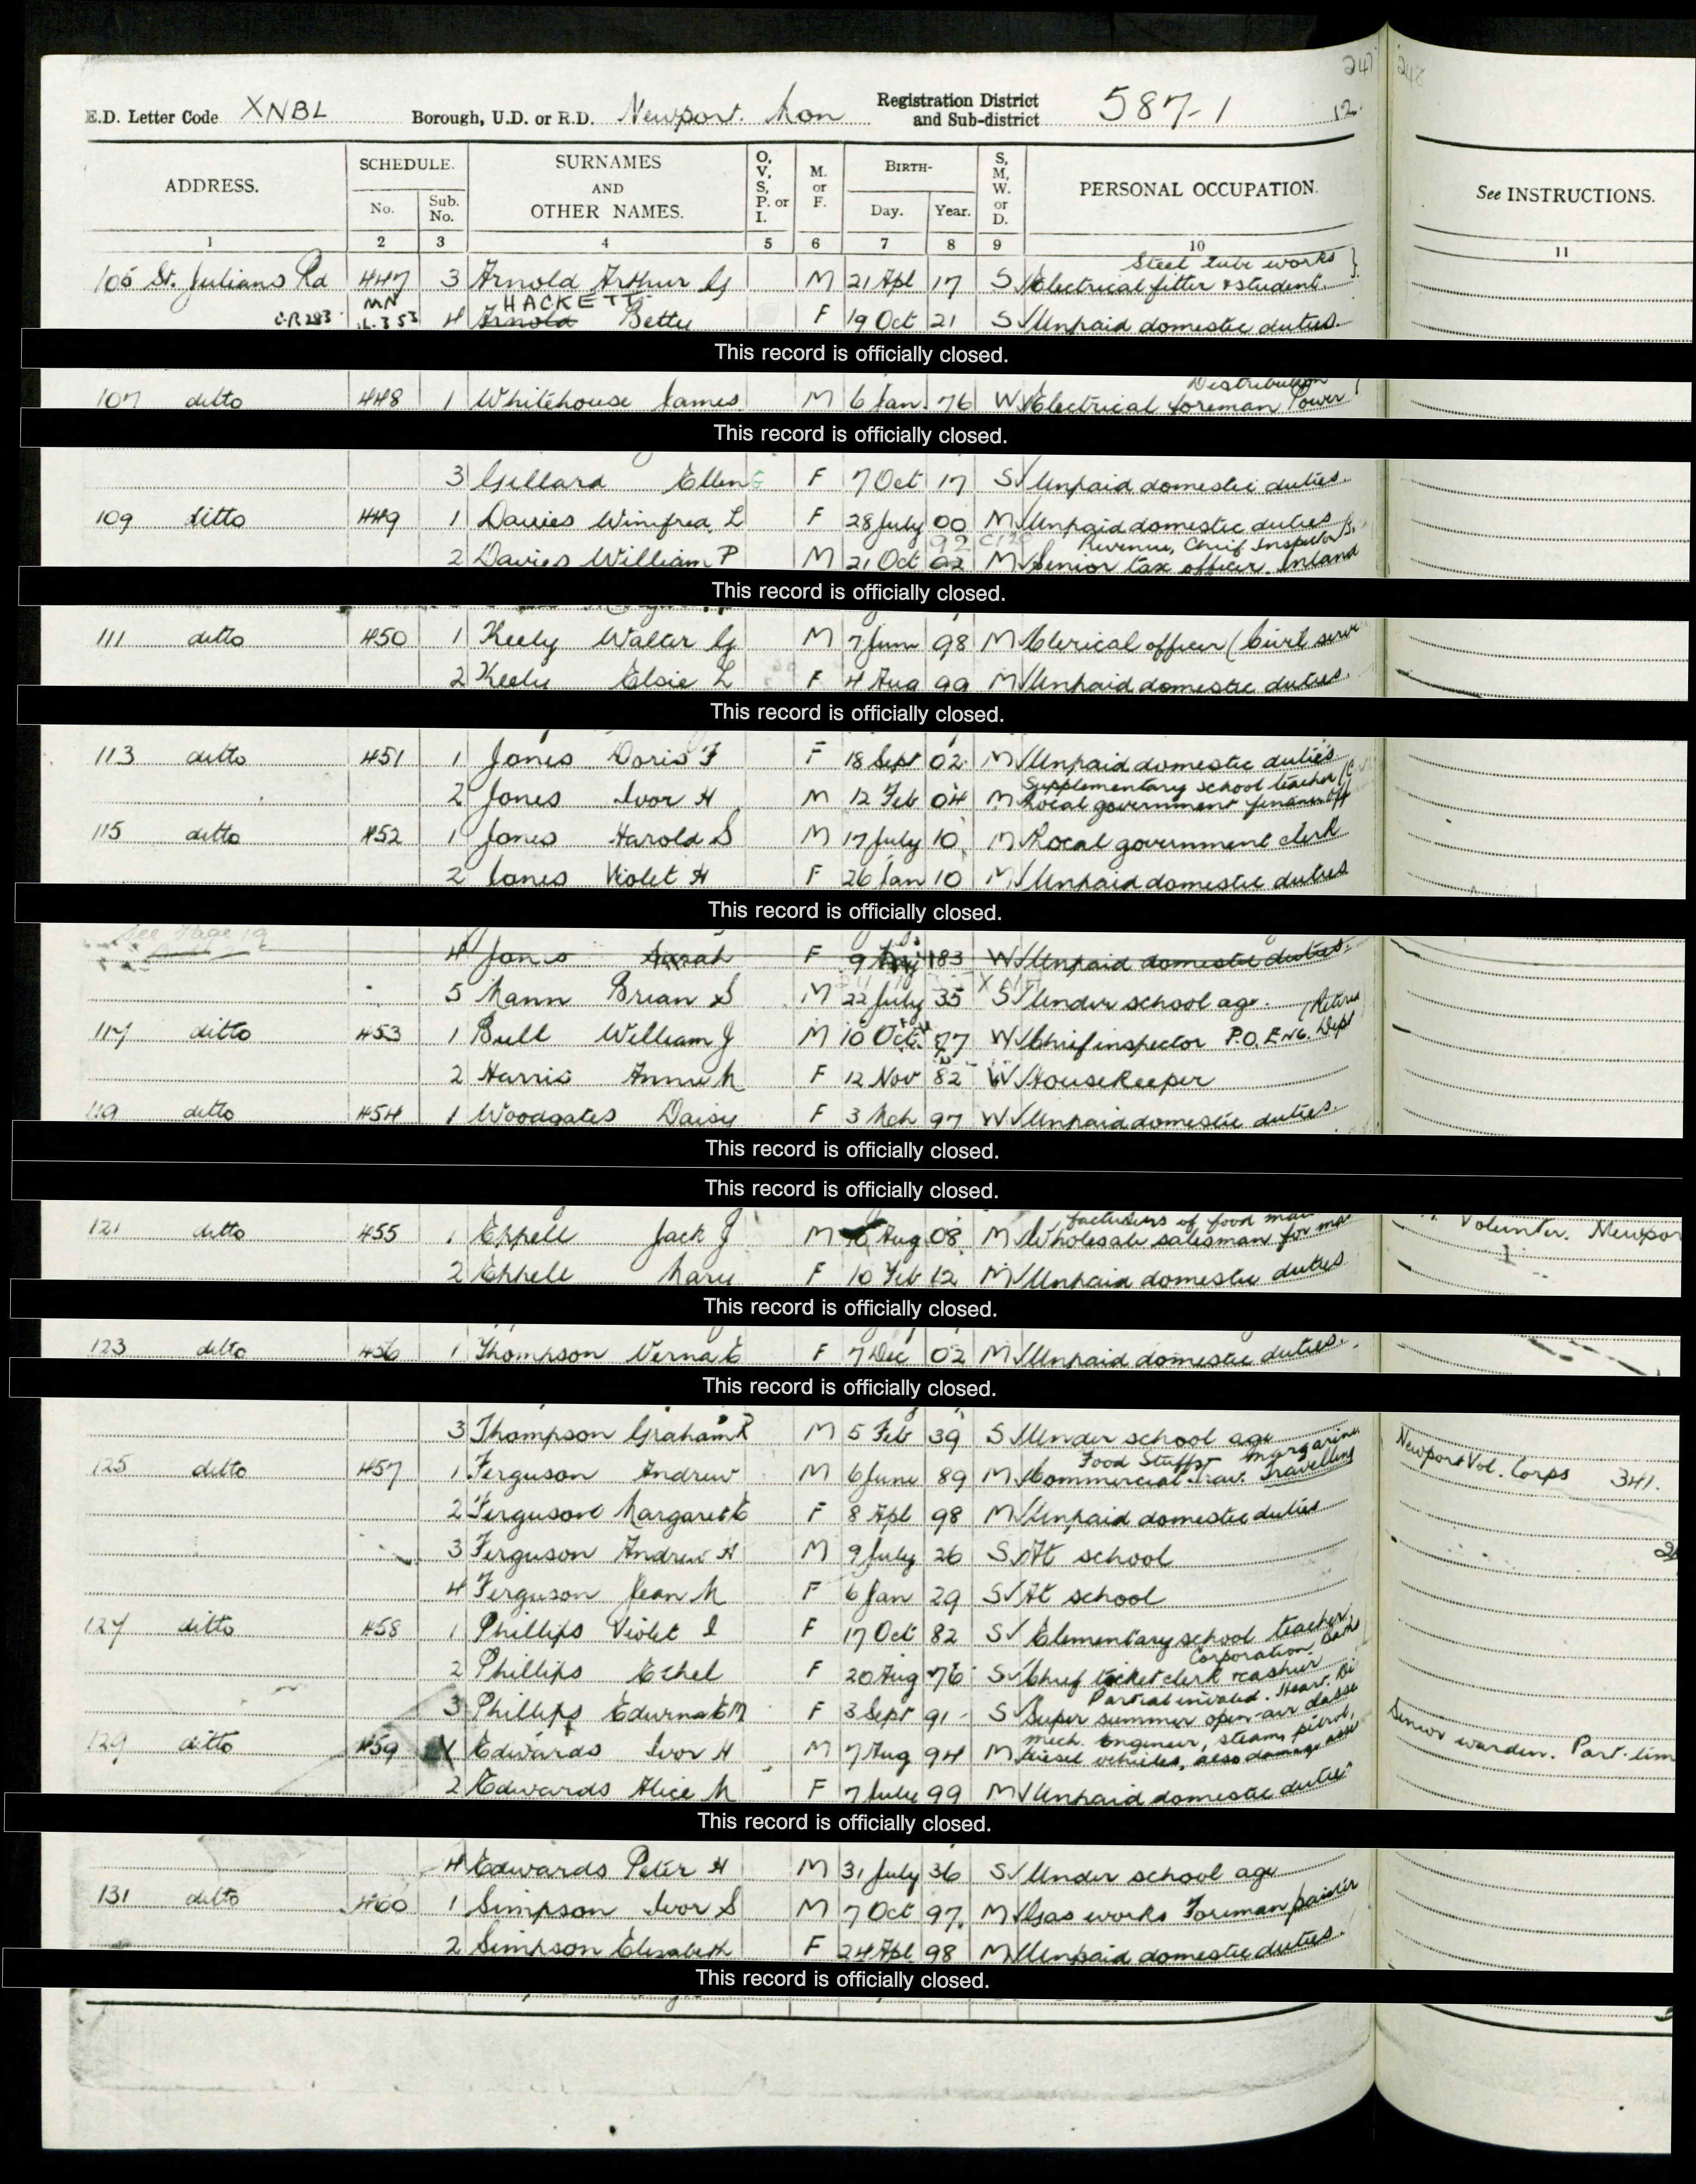 247 248
E.D. Letter Code XNBL Borough, U.D. or R.D. Newport. Mon Registration District and Sub-district 587-1 12.
ADDRESS. SCHEDULE. No. Sub. No. SURNAMES AND OTHER NAMES. O, V, S, P. or I. M. or F. BIRTH- Day. Year. S, M, W. or D. PERSONAL OCCUPATION. See INSTRUCTIONS.
1 2 3 4 5 6 7 8 9 10 11
Steel tube works
105 St. Julians Rd 447 3 Arnold Arthur G M 21 Apl 17 S Electrical fitter & student.
MN HACKETT
CR283 4 Arnold Betty F 19 Oct 21 S Unpaid domestic duties.
This record is officially closed.
Distribution
107 ditto 448 1 Whitehouse James M 6 Jan 76 W Electrical foreman Power
This record is officially closed.
3 Gillard Ellen G F 7 Oct 17 S Unpaid domestic duties.
109 ditto 449 1 Davies Winifred L F 28 July 00 M Unpaid domestic duties
92 Revenue, Chief Inspector
2 Davies William P M 21 Oct 02 M Senior tax officer. Inland
This record is officially closed.
111 ditto 450 1 Keely Walter G M 7 June 98 M Clerical officer (Civil serv
2 Keely Elsie L F 4 Aug 99 M Unpaid domestic duties.
This record is officially closed.
113 ditto 451 1 Jones Doris F F 18 Sept 02 M Unpaid domestic duties
Supplementary school teacher
2 Jones Ivor H M 12 Feb 04 M Local government finance off
115 ditto 452 1 Jones Harold S M 17 July 10 M Local government clerk
2 Jones Violet H F 26 Jan 10 M Unpaid domestic duties
This record is officially closed.
See Page 19
4 Jones Sarah F 9 83 W Unpaid domestic duties.
5 Mann Brian S M 22 July 35 S Under school age.
(Retired
117 ditto 453 1 Bull William J M 10 Oct. 77 W Chief inspector P.O. ENG. Dept
2 Harris Annie M F 12 Nov 82 W Housekeeper
119 ditto 454 1 Woodgates Daisy F 3 Mch 97 W Unpaid domestic duties.
This record is officially closed.
This record is officially closed.
facturers of food
121 ditto 455 1 Eppell Jack J M 10 Aug 08 M Wholesale salesman for ma Volunter. Newpor
2 Eppell Mary F 10 Feb 12 M Unpaid domestic duties
This record is officially closed.
123 ditto 456 1 Thompson Verna E F 7 Dec 02 M Unpaid domestic duties.
This record is officially closed.
3 Thompson Graham R M 5 Feb 39 S Under school age
Food Stuffs Margarine
125 ditto 457 1 Ferguson Andrew M 6 June 89 M Commercial Trav. Travelling Newport Vol. Corps 341.
2 Ferguson Margaret E F 8 Apl 98 M Unpaid domestic duties
3 Ferguson Andrew H M 9 July 26 S At school
4 Ferguson Jean M F 6 Jan 29 S At school
127 ditto 458 1 Phillips Violet I F 17 Oct 82 S Elementary school teacher
Corporation Baths
2 Phillips Ethel F 20 Aug 76 S Chief ticket clerk & cashier
Partial invalid. Heart. Di
3 Phillips Edwina E M F 3 Sept 91 S Super summer open-air classe
Mech. Engineer, steam, petrol,
129 ditto 459 1 Edwards Ivor H M 7 Aug 94 M diesel vehicles, also damage asse Senior warden. Part-tim
2 Edwards Alice M F 7 July 99 M Unpaid domestic duties
This record is officially closed.
4 Edwards Peter H M 31 July 36 S Under school age
131 ditto 460 1 Simpson Ivor S M 7 Oct 97. M Gas works Foreman painter
2 Simpson Elizabeth F 24 Apl 98 M Unpaid domestic duties.
This record is officially closed.